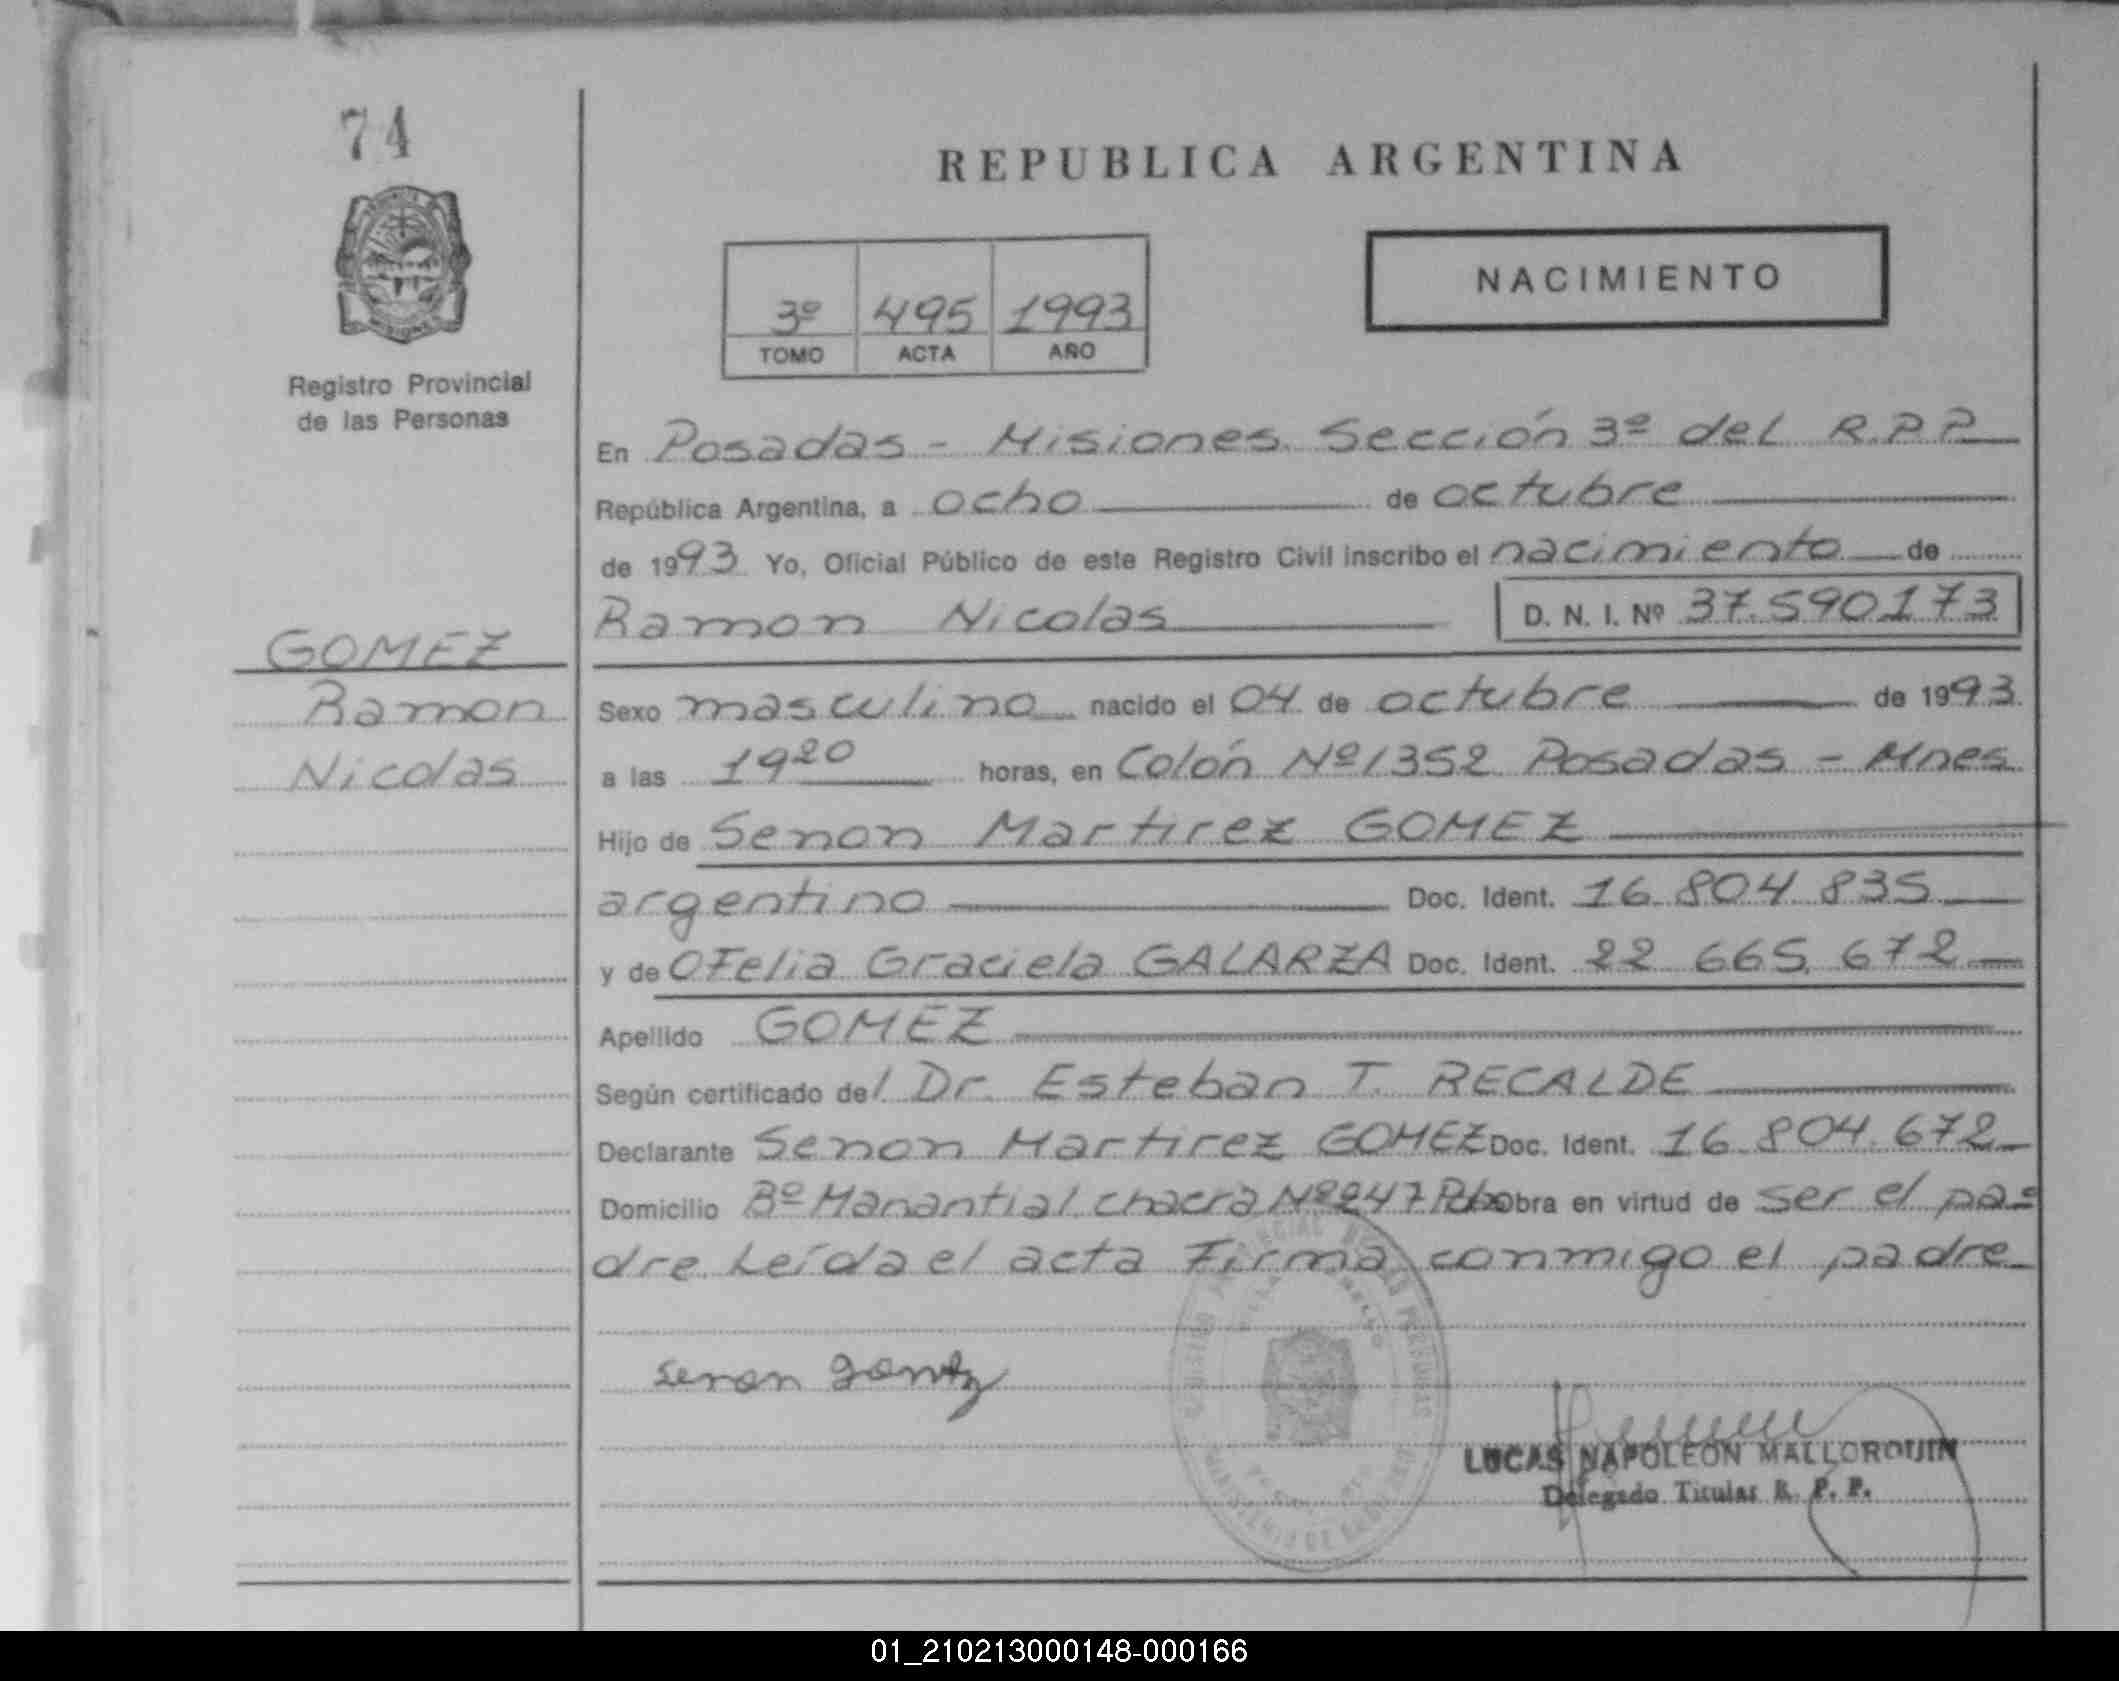 74
REPUBLICA ARGENTINA
NACIMIENTO
3º 495 1993
TOMO ACTA AÑO
Registro Provincial
de las Personas
En Posadas - Misiones. Sección 3º del R.P.P.
República Argentina, a ocho de octubre
de 1993 Yo, Oficial Público de este Registro Civil inscribo el nacimiento de
Ramon Nicolas D. N. I. Nº 37.590173
GOMEZ
Ramon
Nicolas
Sexo masculino nacido el 04 de octubre de 1993
a las 19 20 horas, en Colón Nº 1352 Posadas - Mnes
Hijo de Senon Martirez GOMEZ
argentino Doc. Ident. 16.804.835
y de OFelia Graciela GALARZA Doc. Ident. 22 665.672
Apellido GOMEZ
Según certificado del Dr. Esteban T. RECALDE
Declarante Senon Martirez GOMEZ Doc. Ident. 16.804.672
Domicilio Bº Manantial chacra Nº 247 Obra en virtud de ser el pa-
dre. Leída el acta Firma conmigo el padre
senon gomez
LUCAS NAPOLEON MALLORQUIN
Delegado Titular R. P. P.
01_210213000148-000166